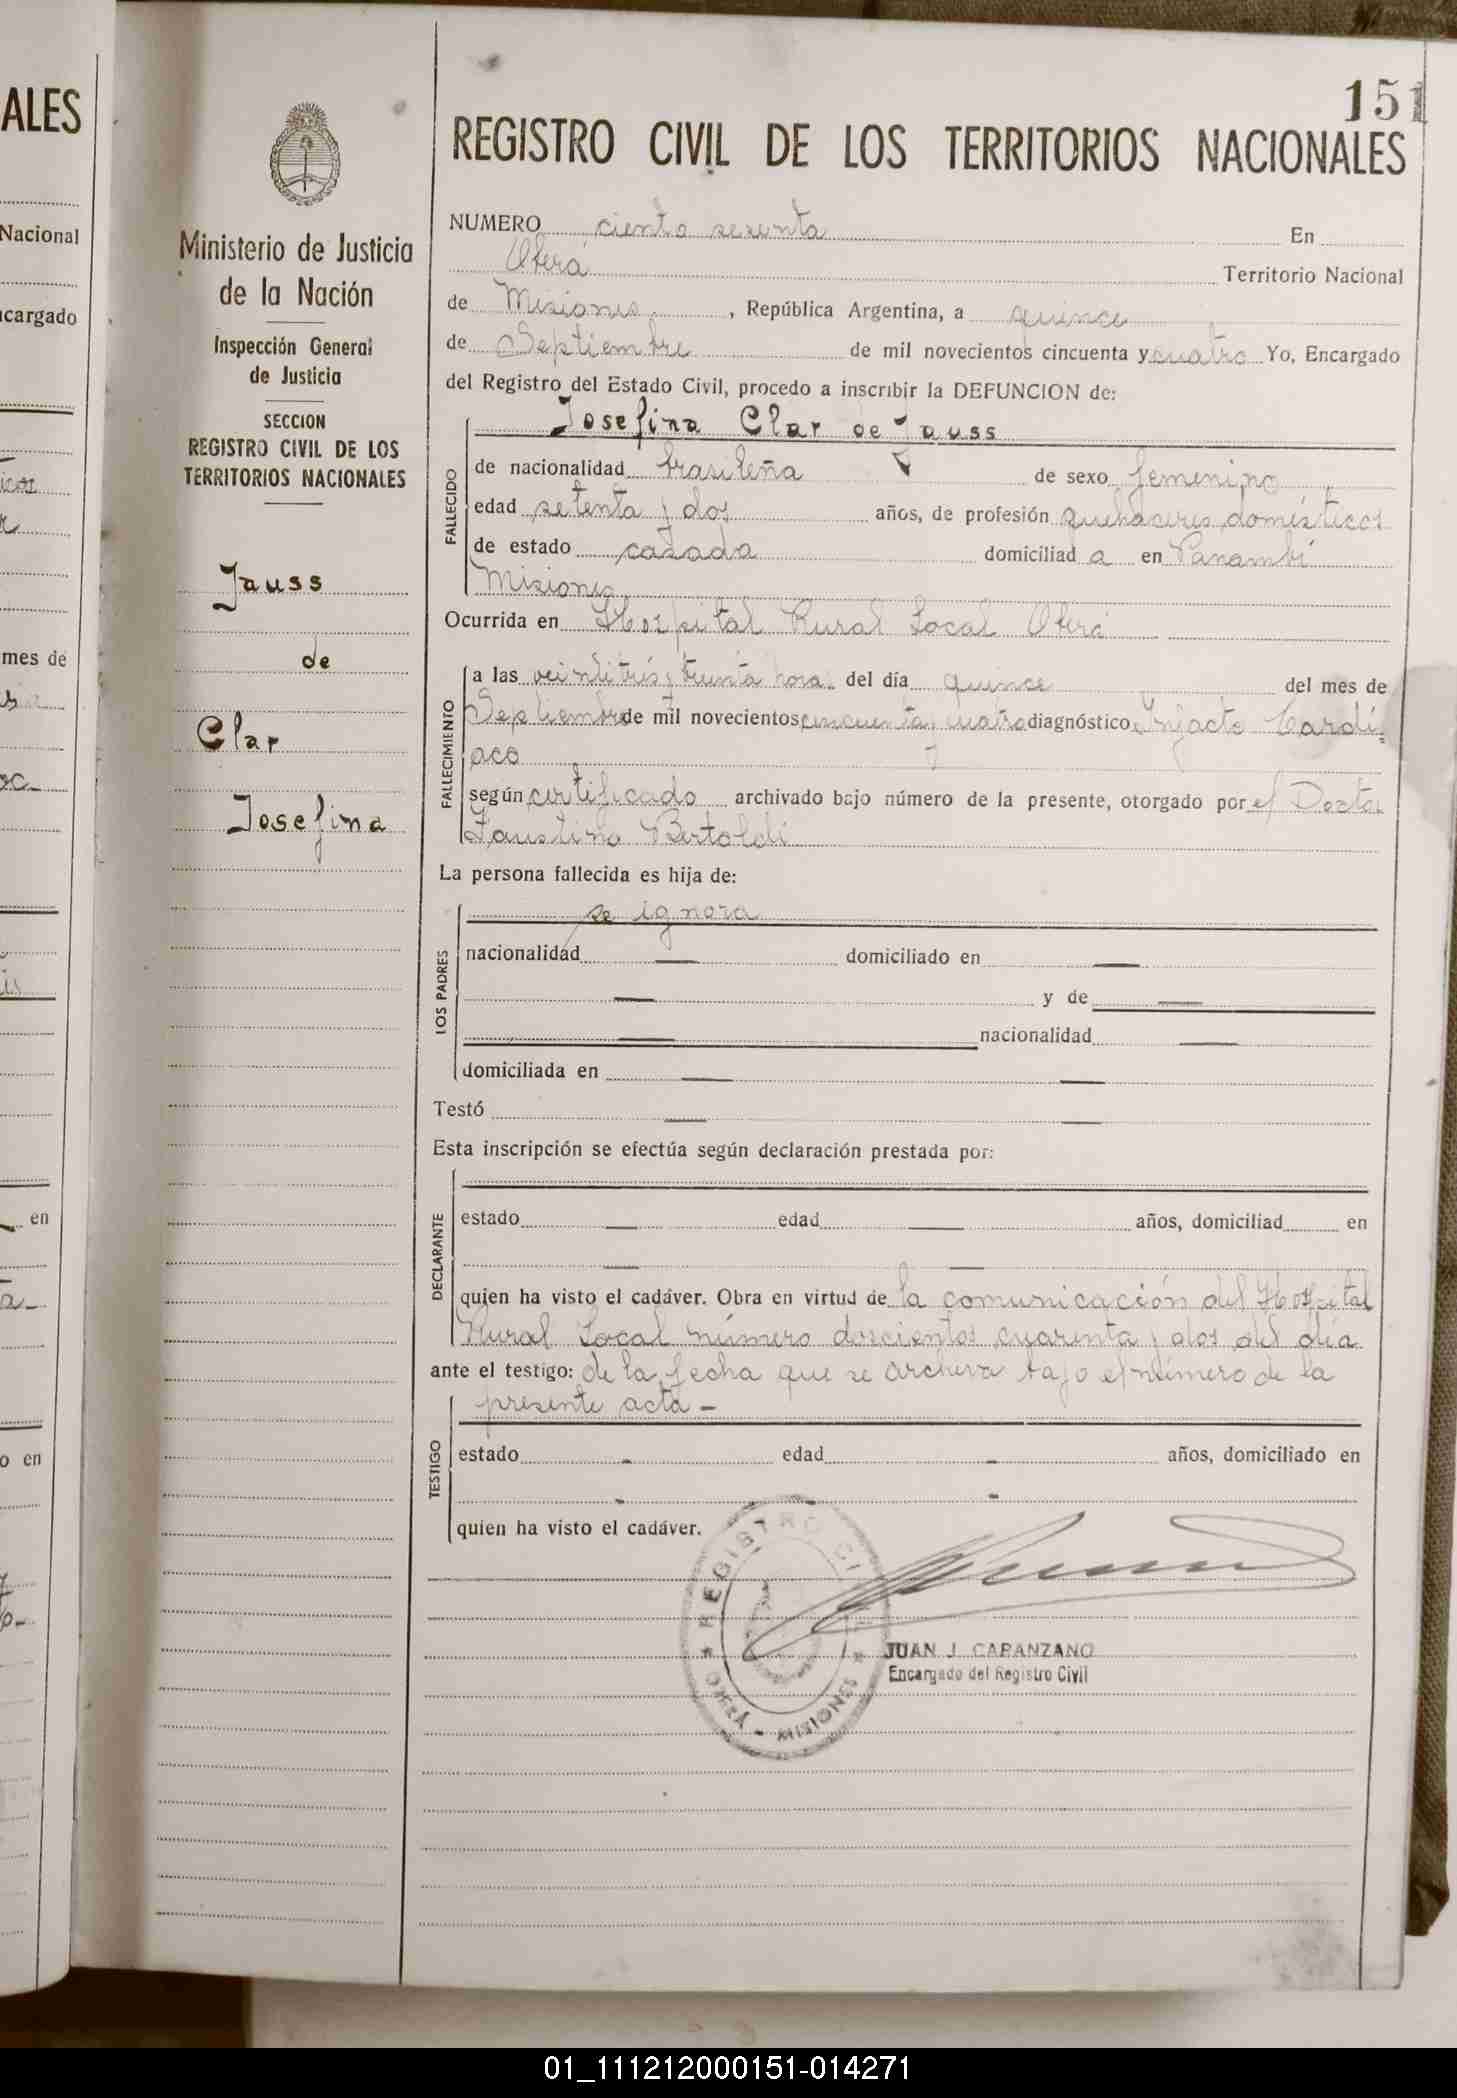 ALES
Nacional
cargado
mes de
en
o en
Ministerio de Justicia
de la Nación
Inspección General
de Justicia
SECCION
REGISTRO CIVIL DE LOS
TERRITORIOS NACIONALES
Jauss
de
Clar
Josefina
151
REGISTRO CIVIL DE LOS TERRITORIOS NACIONALES
NUMERO ciento sesenta En
Oberá Territorio Nacional
de Misiones, República Argentina, a quince
de Septiembre de mil novecientos cincuenta y cuatro Yo, Encargado
del Registro del Estado Civil, procedo a inscribir la DEFUNCION de:
Josefina Clar de Jauss
FALLECIDO
de nacionalidad brasileña de sexo femenino
edad setenta y dos años, de profesión quehaceres domésticos
de estado casada domiciliad a en Panambí
Misiones
Ocurrida en Hospital Rural Local Oberá
FALLECIMIENTO
a las veintitrés y treinta hora del día quince del mes de
Septiembre de mil novecientos cincuenta y cuatro diagnóstico Injacto Cardí-
aco
según certificado archivado bajo número de la presente, otorgado por el Doctor
Faustino Bertoldi
La persona fallecida es hija de:
LOS PADRES
se ignora
nacionalidad — domiciliado en —
— y de —
— nacionalidad —
domiciliada en — —
Testó — —
Esta inscripción se efectúa según declaración prestada por:
DECLARANTE
estado — edad — años, domiciliad en
— —
quien ha visto el cadáver. Obra en virtud de la comunicación del Hospital
Rural Local número doscientos cuarenta y dos del día
ante el testigo: de la fecha que se archiva bajo el número de la
presente acta -
TESTIGO
estado - edad - años, domiciliado en
- -
quien ha visto el cadáver.
REGISTRO CIVIL
OBERÁ - MISIONES
JUAN J. CAPANZANO
Encargado del Registro Civil
01_111212000151-014271